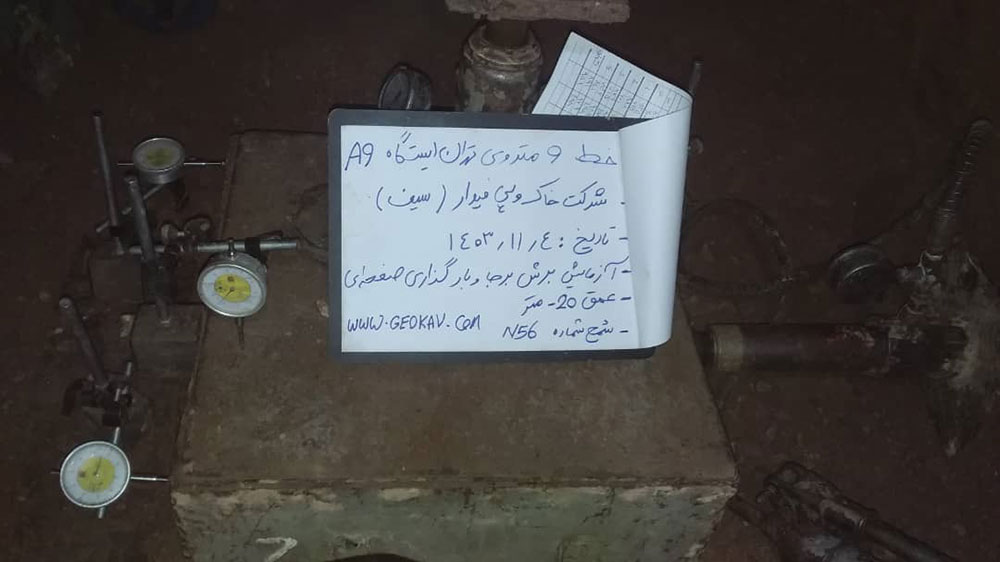 خط 9 متروی تهران ایستگاه A9
- شرکت خاک و پی فیدار (سیف)
- تاریخ : ۱۴۰۳٫۱۱٫۰٤
- آزمایش برش برجا و بارگذاری صفحه‌ای
- عمق 20- متر
- شمع شماره N56
www.GEOKAV.com